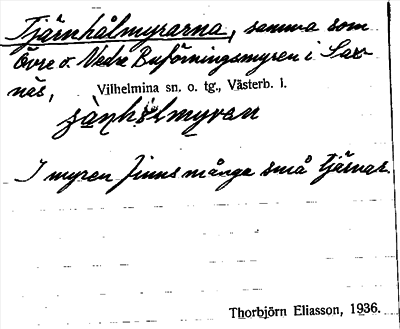 Tjärnhålmyrarna, samma som
Övre o. Nedre Buföringsmyren i Sax-
näs, Vilhelmina sn. o. tg., Västerb. l.
I myren finns många små tjärnar.
Thorbjörn Eliasson, 1936.